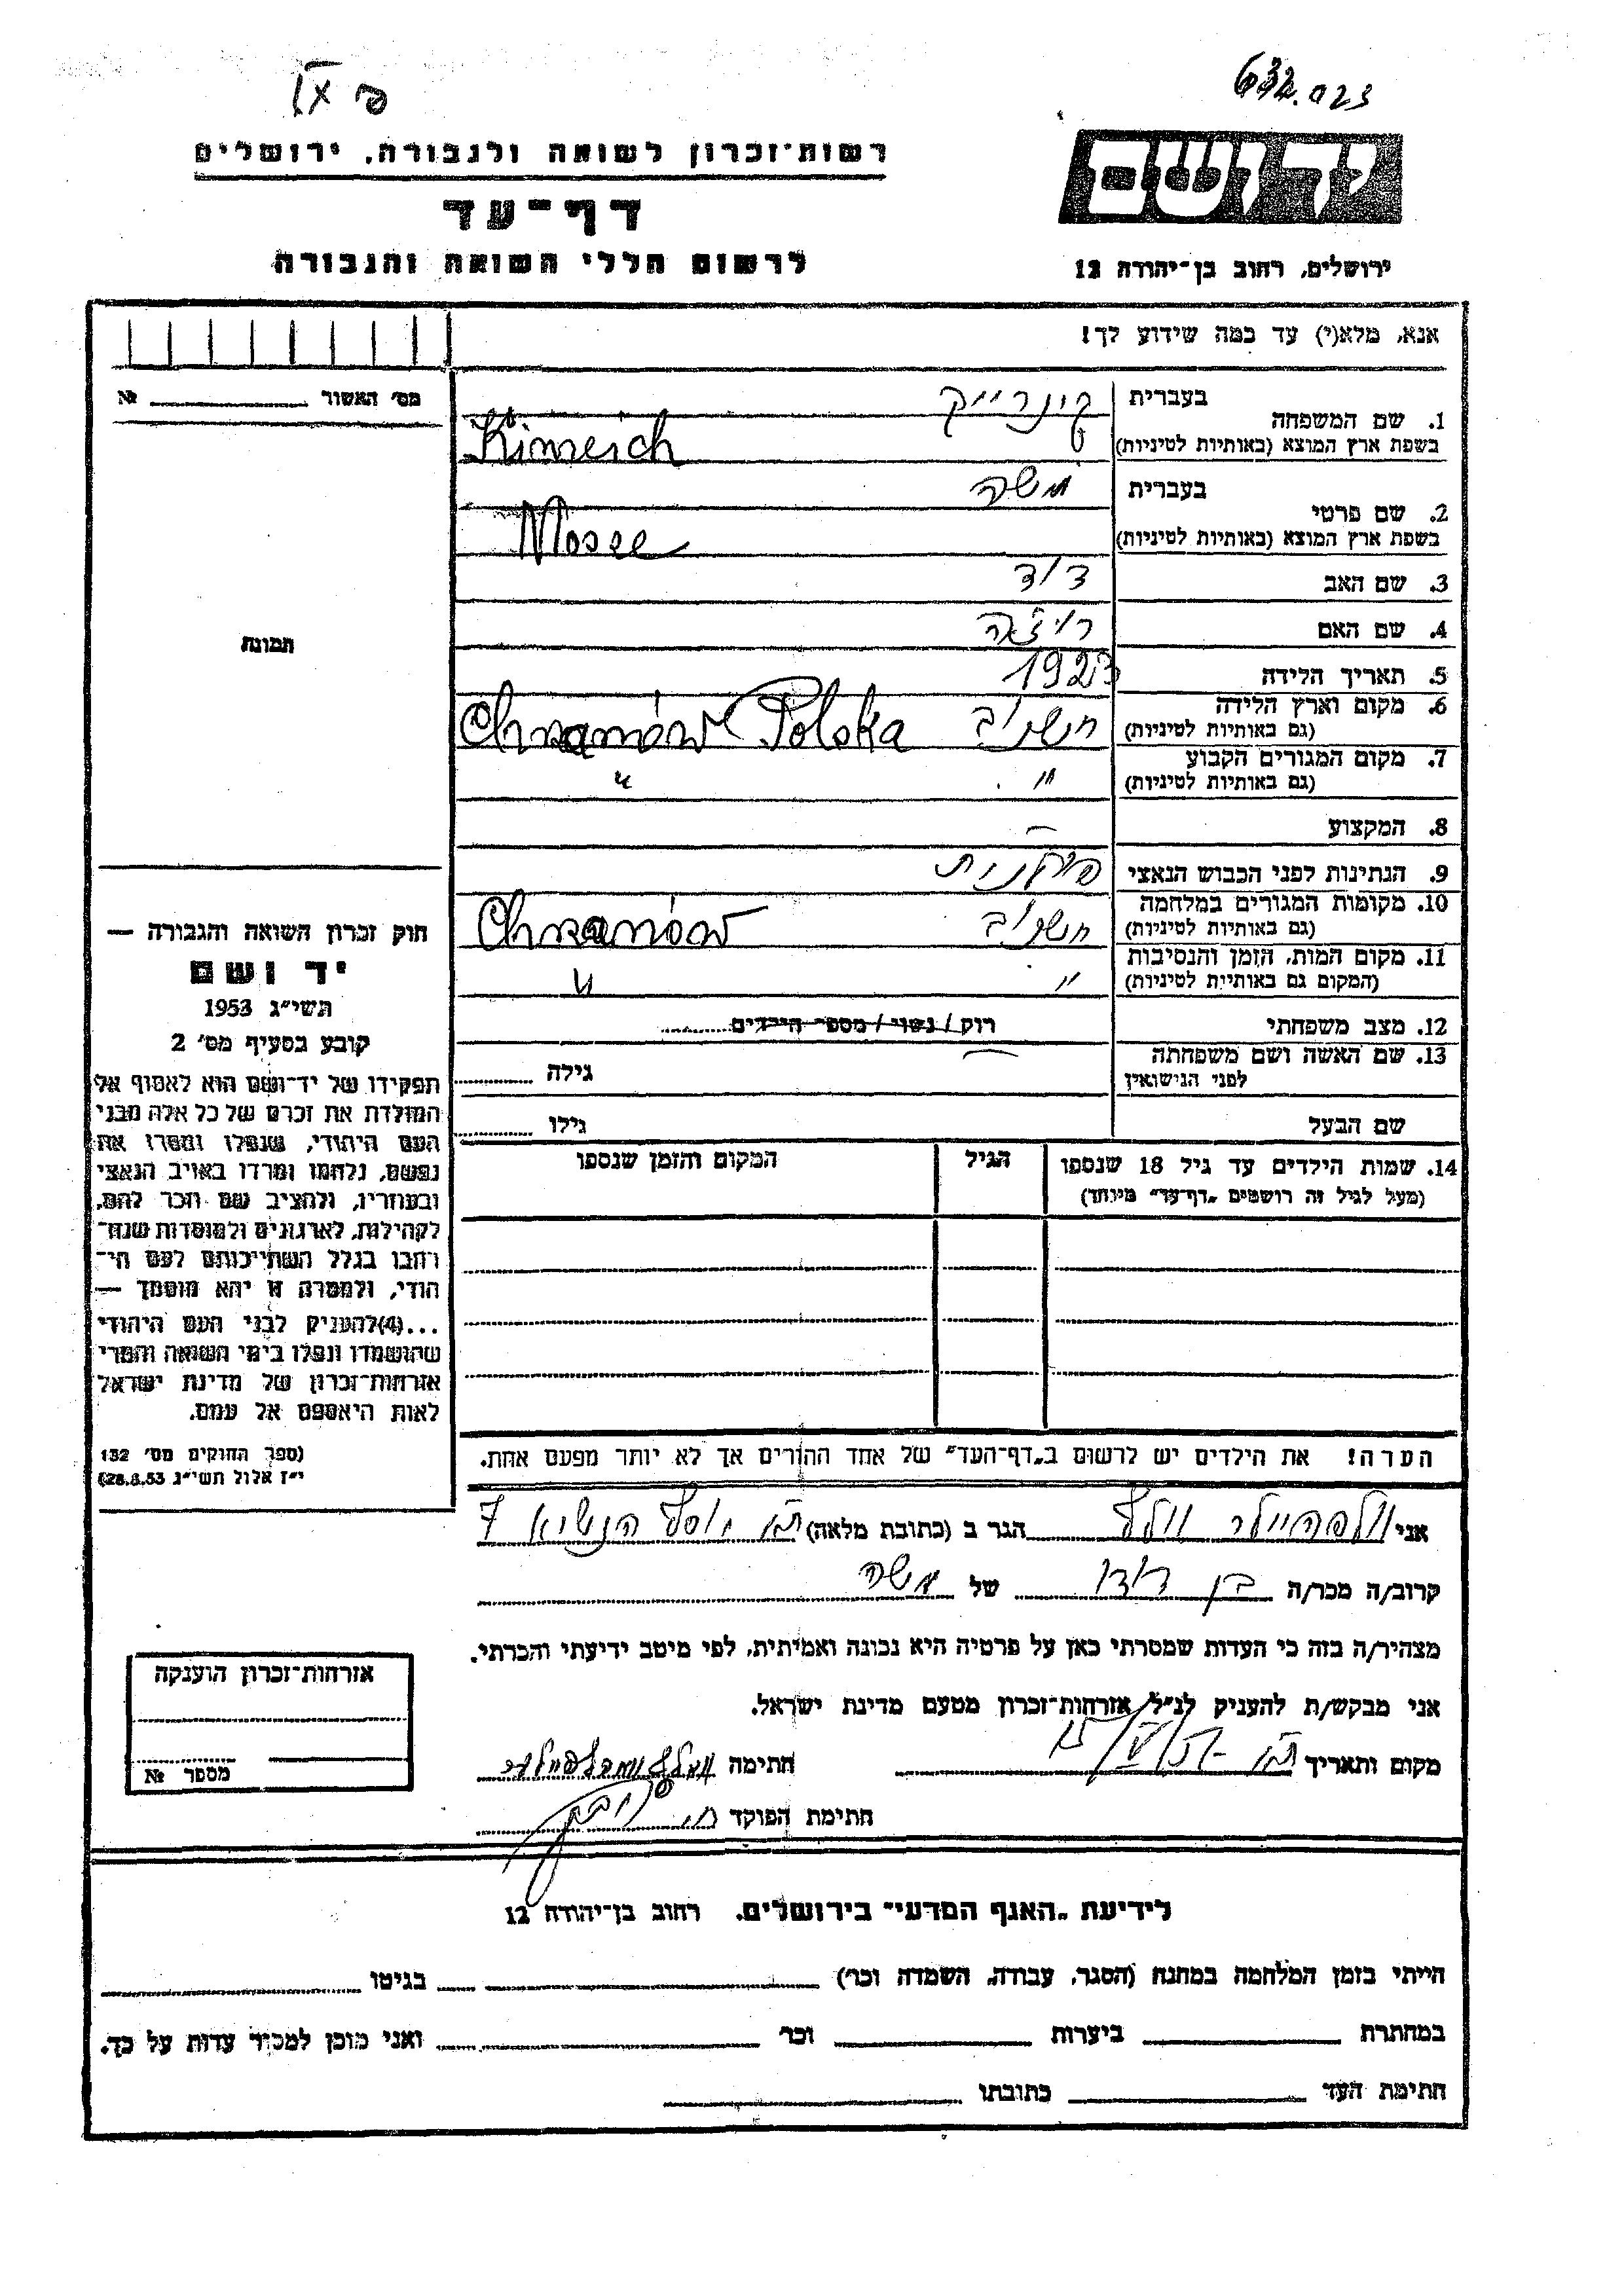 632.023
פ IX
יד ושם
רשות־זכרון לשואה ולגבורה, ירושלים
דף־עד
לרשום חללי השואה והגבורה
ירושלים, רחוב בן־יהודה 12
אנא, מלא(י) עד כמה שידוע לך!
מס׳ האשור № 
1. שם המשפחה
בעברית
קינרייך
בשפת ארץ המוצא (באותיות לטיניות)
Kinreich
2. שם פרטי
בעברית
משה
בשפת ארץ המוצא (באותיות לטיניות)
Mosee
3. שם האב דוד
4. שם האם רויזה
5. תאריך הלידה 1923
6. מקום וארץ הלידה
(גם באותיות לטיניות)
חשנוב Chrzanów Polska
7. מקום המגורים הקבוע
(גם באותיות לטיניות)
" "
8. המקצוע —
9. הנתינות לפני הכבוש הנאצי פולנית
10. מקומות המגורים במלחמה
(גם באותיות לטיניות)
חשנוב Chrzanów
11. מקום המות, הזמן והנסיבות
(המקום גם באותיית לטיניות)
" "
12. מצב משפחתי רוק / נשוי / מספר הילדים
13. שם האשה ושם משפחתה
לפני הנישואין
— גילה
שם הבעל גילו
14. שמות הילדים עד גיל 18 שנספו
(מעל לגיל זה רושמים „דף־עד״ מיוחד)
הגיל
המקום והזמן שנספו
תמונה
חוק זכרון השואה והגבורה —
יד ושם
תשי״ג 1953
קובע בסעיף מס׳ 2
תפקידו של יד־ושם הוא לאסוף אל
המולדת את זכרם של כל אלה מבני
העם היהודי, שנפלו ומסרו את
נפשם, נלחמו ומרדו באויב הנאצי
ובעוזריו, ולהציב שם וזכר להם,
לקהילות, לארגונים ולמוסדות שנח־
רחבו בגלל השתייכותם לעם הי־
הודי, ולמטרה זו יהא מוסמך —
...(4)להעניק לבני העם היהודי
שהושמדו ונפלו בימי השואה והמרי
אזרחות־זכרון של מדינת ישראל
לאות היאספם אל עמם.
(ספר החוקים מס׳ 132
י״ז אלול תשי״ג 28.8.53)
הערה! את הילדים יש לרשום ב„דף־העד״ של אחד ההורים אך לא יותר מפעם אחת.
אני הגר ב (כתובת מלאה) ת״א יוסף הנשיא 7
קרוב/ה מכר/ה בן דודו של משה
מצהיר/ה בזה כי העדות שמסרתי כאן על פרטיה היא נכונה ואמיתית, לפי מיטב ידיעתי והכרתי.
אני מבקש/ת להעניק לנ״ל אזרחות־זכרון מטעם מדינת ישראל.
מקום ותאריך ת״א חתימה
חתימת הפוקד
אזרחות־זכרון הוענקה
מספר №
לידיעת „האגף המדעי״ בירושלים, רחוב בן־יהודה 12
הייתי בזמן המלחמה במחנה (הסגר, עבודה, השמדה וכר׳) בגיטו
במחתרת ביערות וכר׳ ואני מוכן למסור עדות על כך.
חתימת העד כתובתו